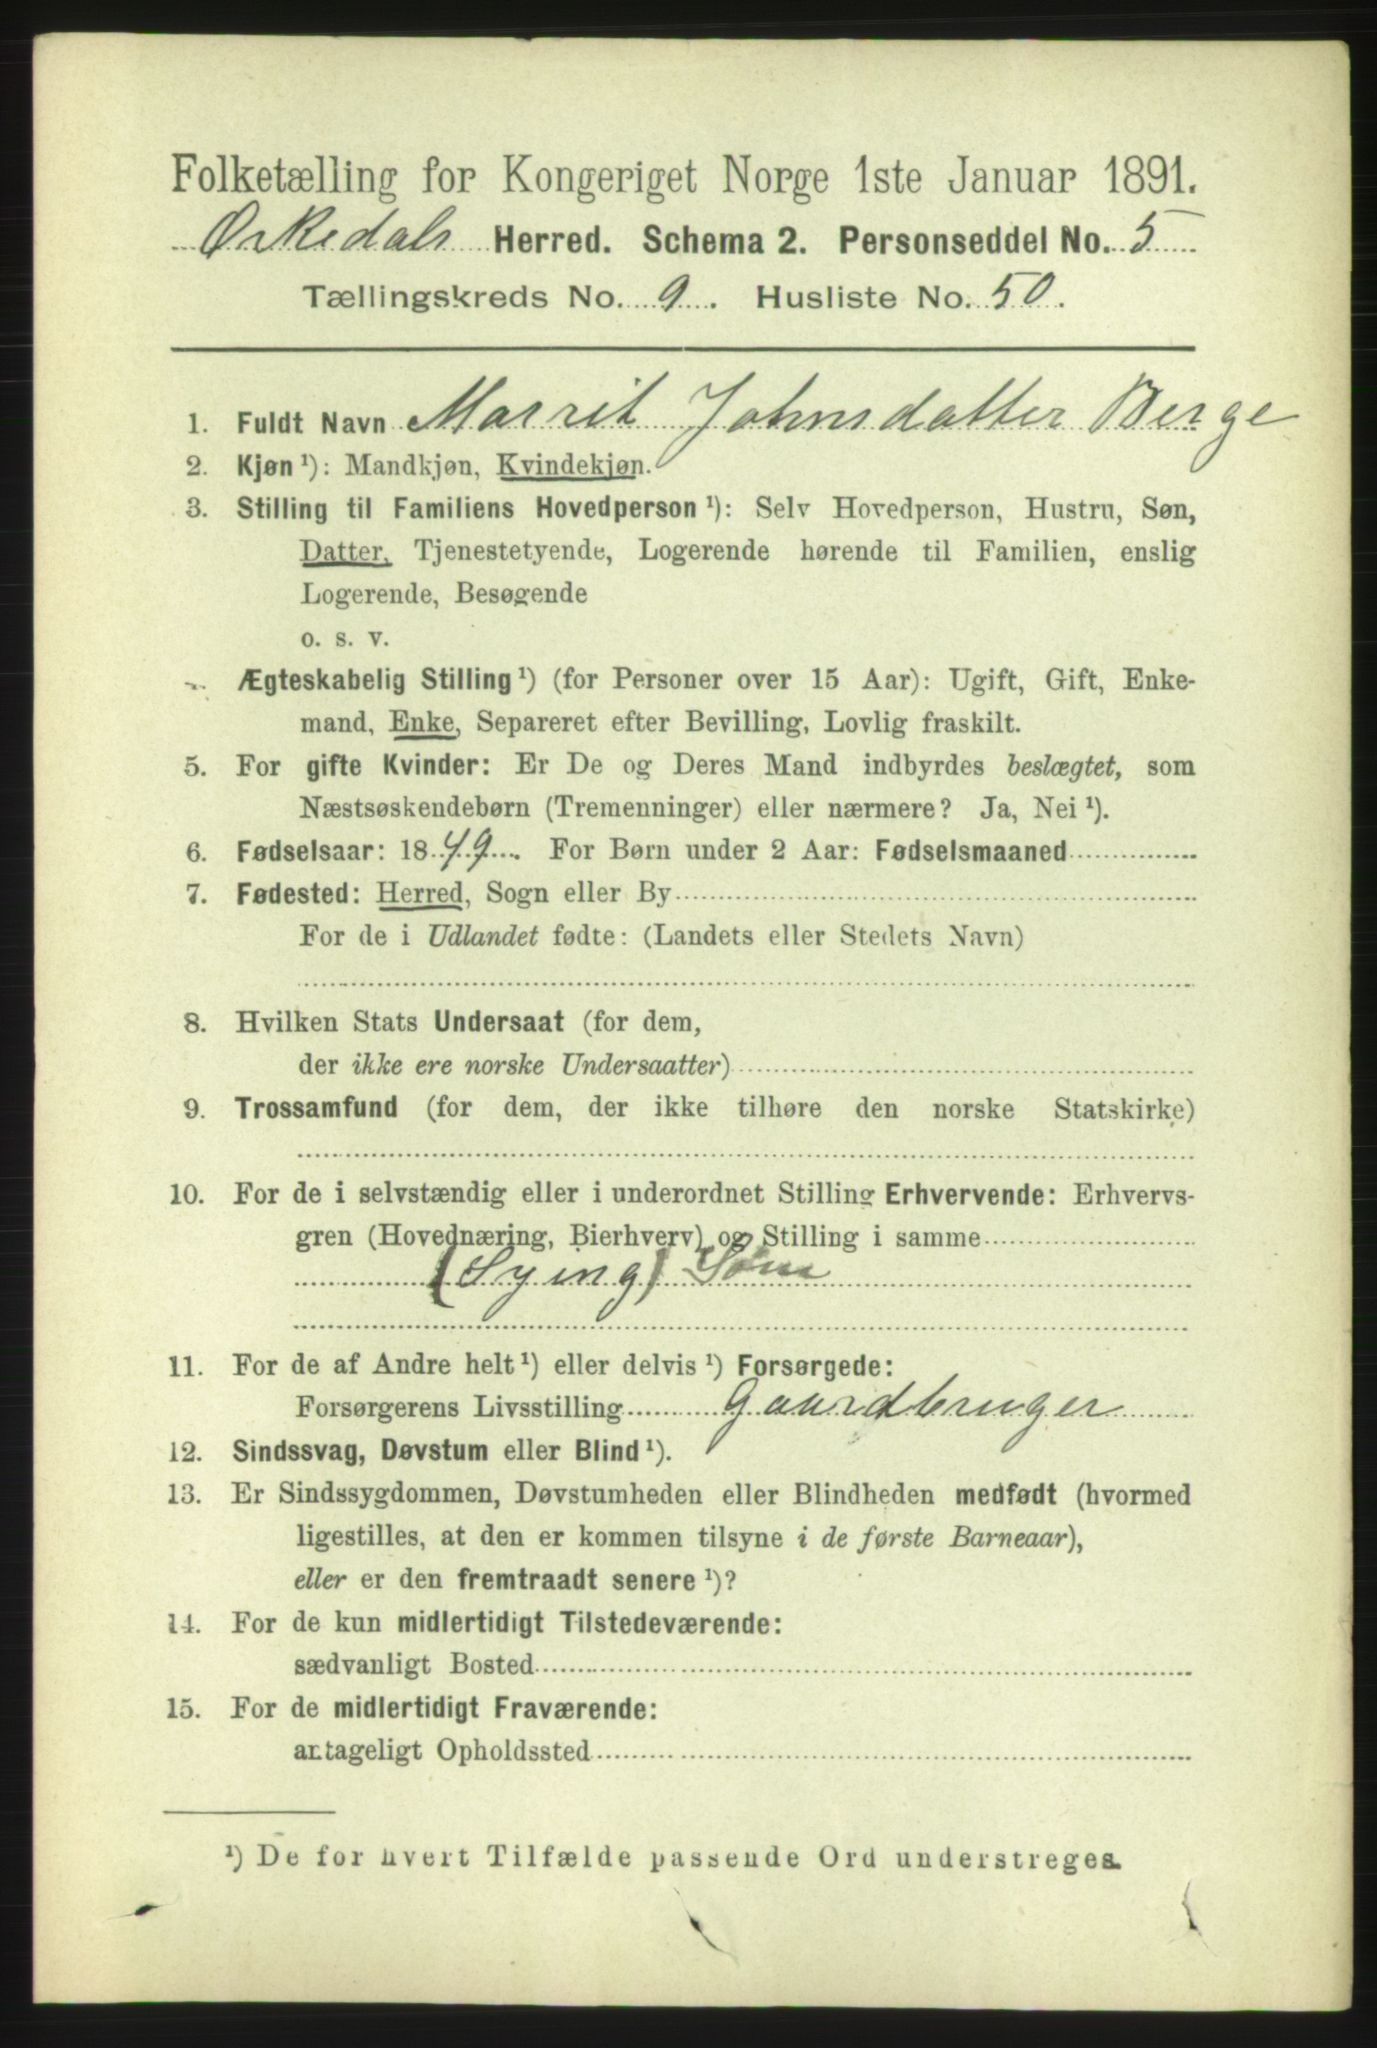 Folketælling for Kongeriget Norge 1ste Januar 1891.
Orkedals Herred. Schema 2. Personseddel No. 5
Tællingskreds No. 9. Husliste No. 50.
1. Fuldt Navn Marrit Johnsdatter Berge
2. Kjøn ¹): Mandkjøn, Kvindekjøn.
3. Stilling til Familiens Hovedperson ¹): Selv Hovedperson, Hustru, Søn,
Datter, Tjenestetyende, Logerende hørende til Familien, enslig
Logerende, Besøgende
o. s. v.
Ægteskabelig Stilling ¹) (for Personer over 15 Aar): Ugift, Gift, Enke-
mand, Enke, Separeret efter Bevilling, Lovlig fraskilt.
5. For gifte Kvinder: Er De og Deres Mand indbyrdes beslægtet, som
Næstsøskendebørn (Tremenninger) eller nærmere? Ja, Nei ¹).
6. Fødselsaar: 1849. For Børn under 2 Aar: Fødselsmaaned
7. Fødested: Herred, Sogn eller By
For de i Udlandet fødte: (Landets eller Stedets Navn)
8. Hvilken Stats Undersaat (for dem,
der ikke ere norske Undersaatter)
9. Trossamfund (for dem, der ikke tilhøre den norske Statskirke)
10. For de i selvstændig eller i underordnet Stilling Erhvervende: Erhvervs-
gren (Hovednæring, Bierhverv) og Stilling i samme
(Sying) Søm
11. For de af Andre helt ¹) eller delvis ¹) Forsørgede:
Forsørgerens Livsstilling Gaardbruger
12. Sindssvag, Døvstum eller Blind ¹).
13. Er Sindssygdommen, Døvstumheden eller Blindheden medfødt (hvormed
ligestilles, at den er kommen tilsyne i de første Barneaar),
eller er den fremtraadt senere ¹)?
14. For de kun midlertidigt Tilstedeværende:
sædvanligt Bosted
15. For de midlertidigt Fraværende:
antageligt Opholdssted
¹) De for hvert Tilfælde passende Ord understreges.